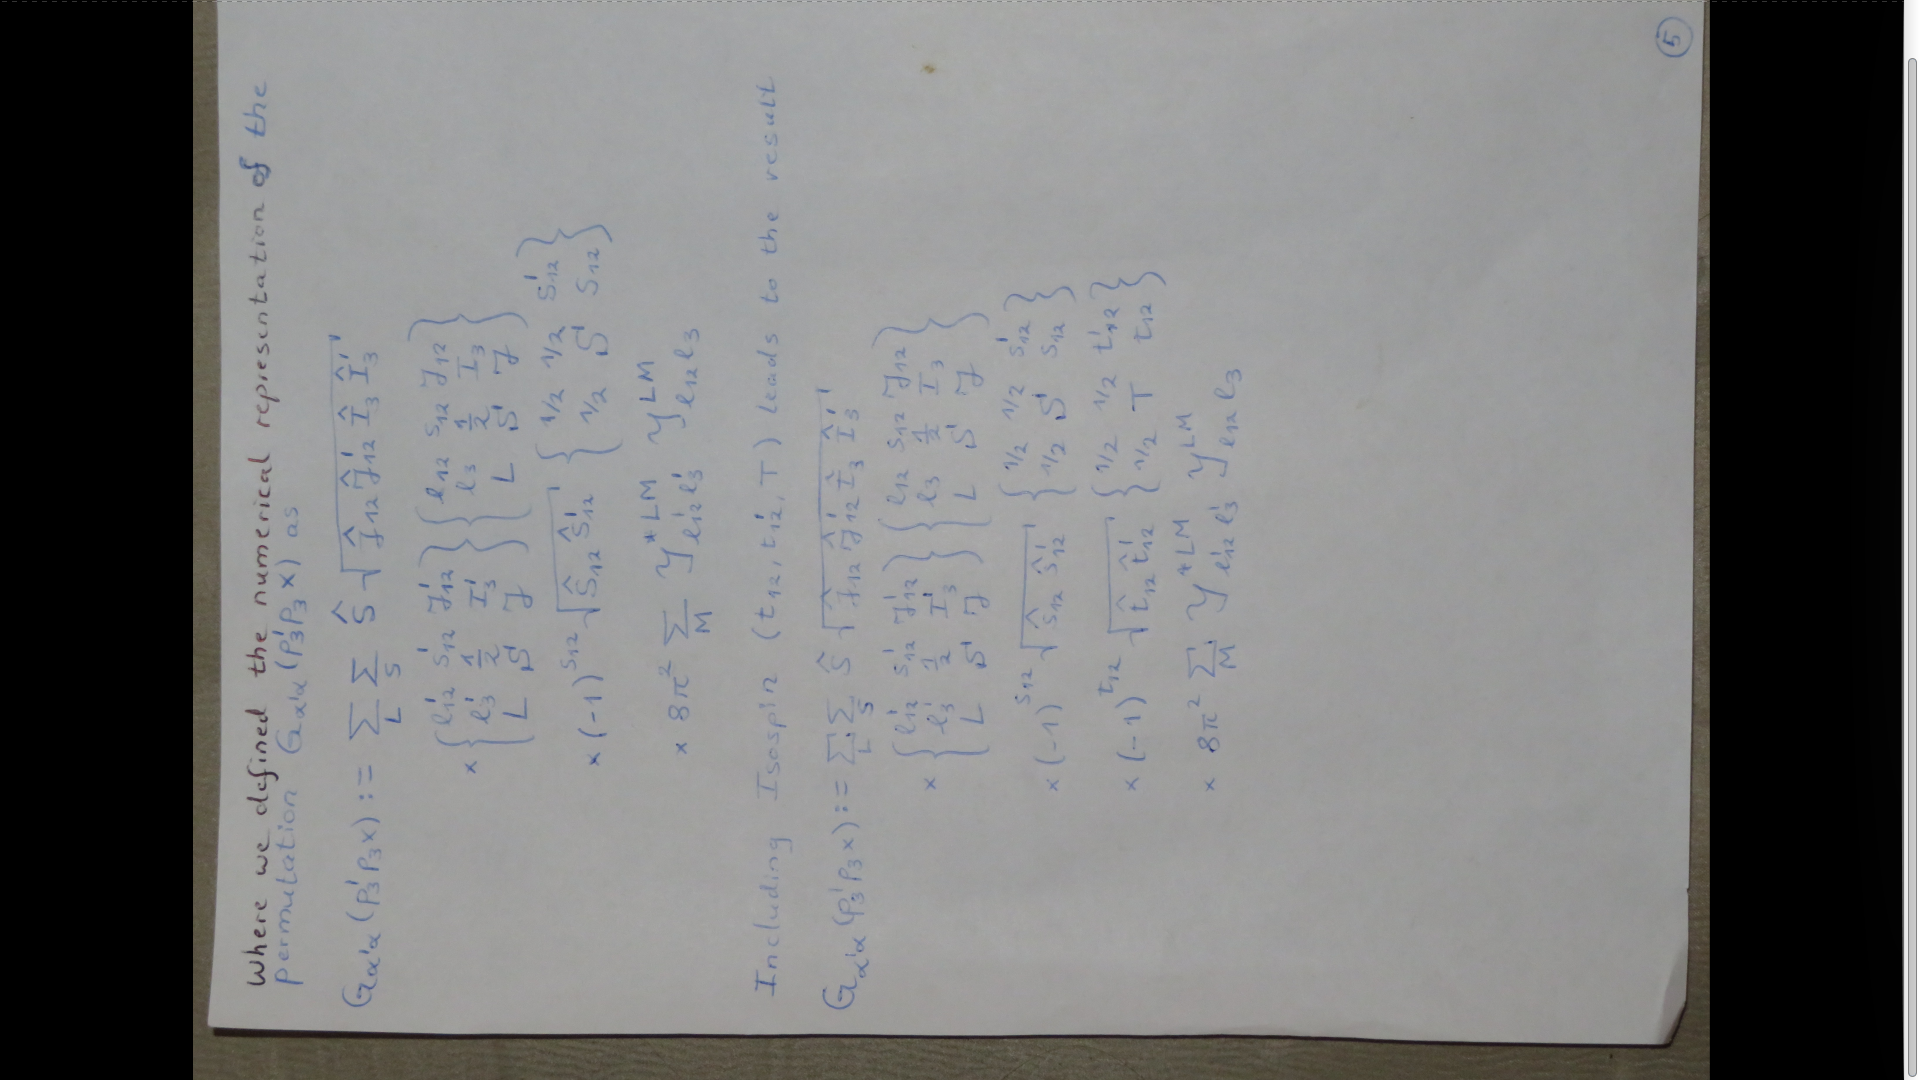 Where we defined the numerical representation of the
permutation G_{α'α}(p₃'p₃x) as
G_{α'α}(p₃'p₃x) := ∑_L ∑_S Ŝ √(Ĵ₁₂ Ĵ₁₂' Î₃ Î₃')
× { l₁₂' s₁₂' J₁₂' ; l₃' 1/2 I₃' ; L S J } { l₁₂ s₁₂ J₁₂ ; l₃ 1/2 I₃ ; L S J }
× (-1)^{s₁₂} √(ŝ₁₂ ŝ₁₂') { 1/2 1/2 s₁₂' ; 1/2 S s₁₂ }
× 8π² ∑_M Y*^{LM}_{l₁₂'l₃'} Y^{LM}_{l₁₂l₃}
Including Isospin (t₁₂, t₁₂', T) leads to the result
G_{α'α}(p₃'p₃x) := ∑_L ∑_S Ŝ √(Ĵ₁₂ Ĵ₁₂' Î₃ Î₃')
× { l₁₂' s₁₂' J₁₂' ; l₃' 1/2 I₃' ; L S J } { l₁₂ s₁₂ J₁₂ ; l₃ 1/2 I₃ ; L S J }
× (-1)^{s₁₂} √(ŝ₁₂ ŝ₁₂') { 1/2 1/2 s₁₂' ; 1/2 S s₁₂ }
× (-1)^{t₁₂} √(t̂₁₂ t̂₁₂') { 1/2 1/2 t₁₂' ; 1/2 T t₁₂ }
× 8π² ∑_M Y*^{LM}_{l₁₂'l₃'} Y^{LM}_{l₁₂l₃}
5